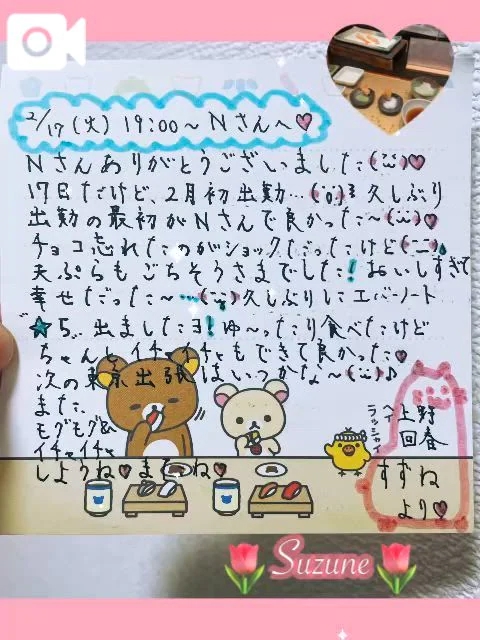 2/17(火) 19:00～Nさんへ♡
Nさんありがとうございました(¨)♡
17日だけど、2月初出勤…(¨)久しぶり
出勤の最初がNさんで良かった～(¨)♡
チョコ忘れたのがショックだったけど
天ぷらもごちそうさまでした！おいしすぎて
幸せだった～…(¨)久しぶりにエバーノート
★5出ましたヨ！ゆ～ったり食べたけど
ちゃんとイチャイチャもできて良かった♡
次の東京出張はいつかな～(¨)♪
また、
モグモグ&
イチャイチャ
しようね♡まってね♡
ヘイ
ラッシャイ
上野
回春
すずね
より♡
Suzune